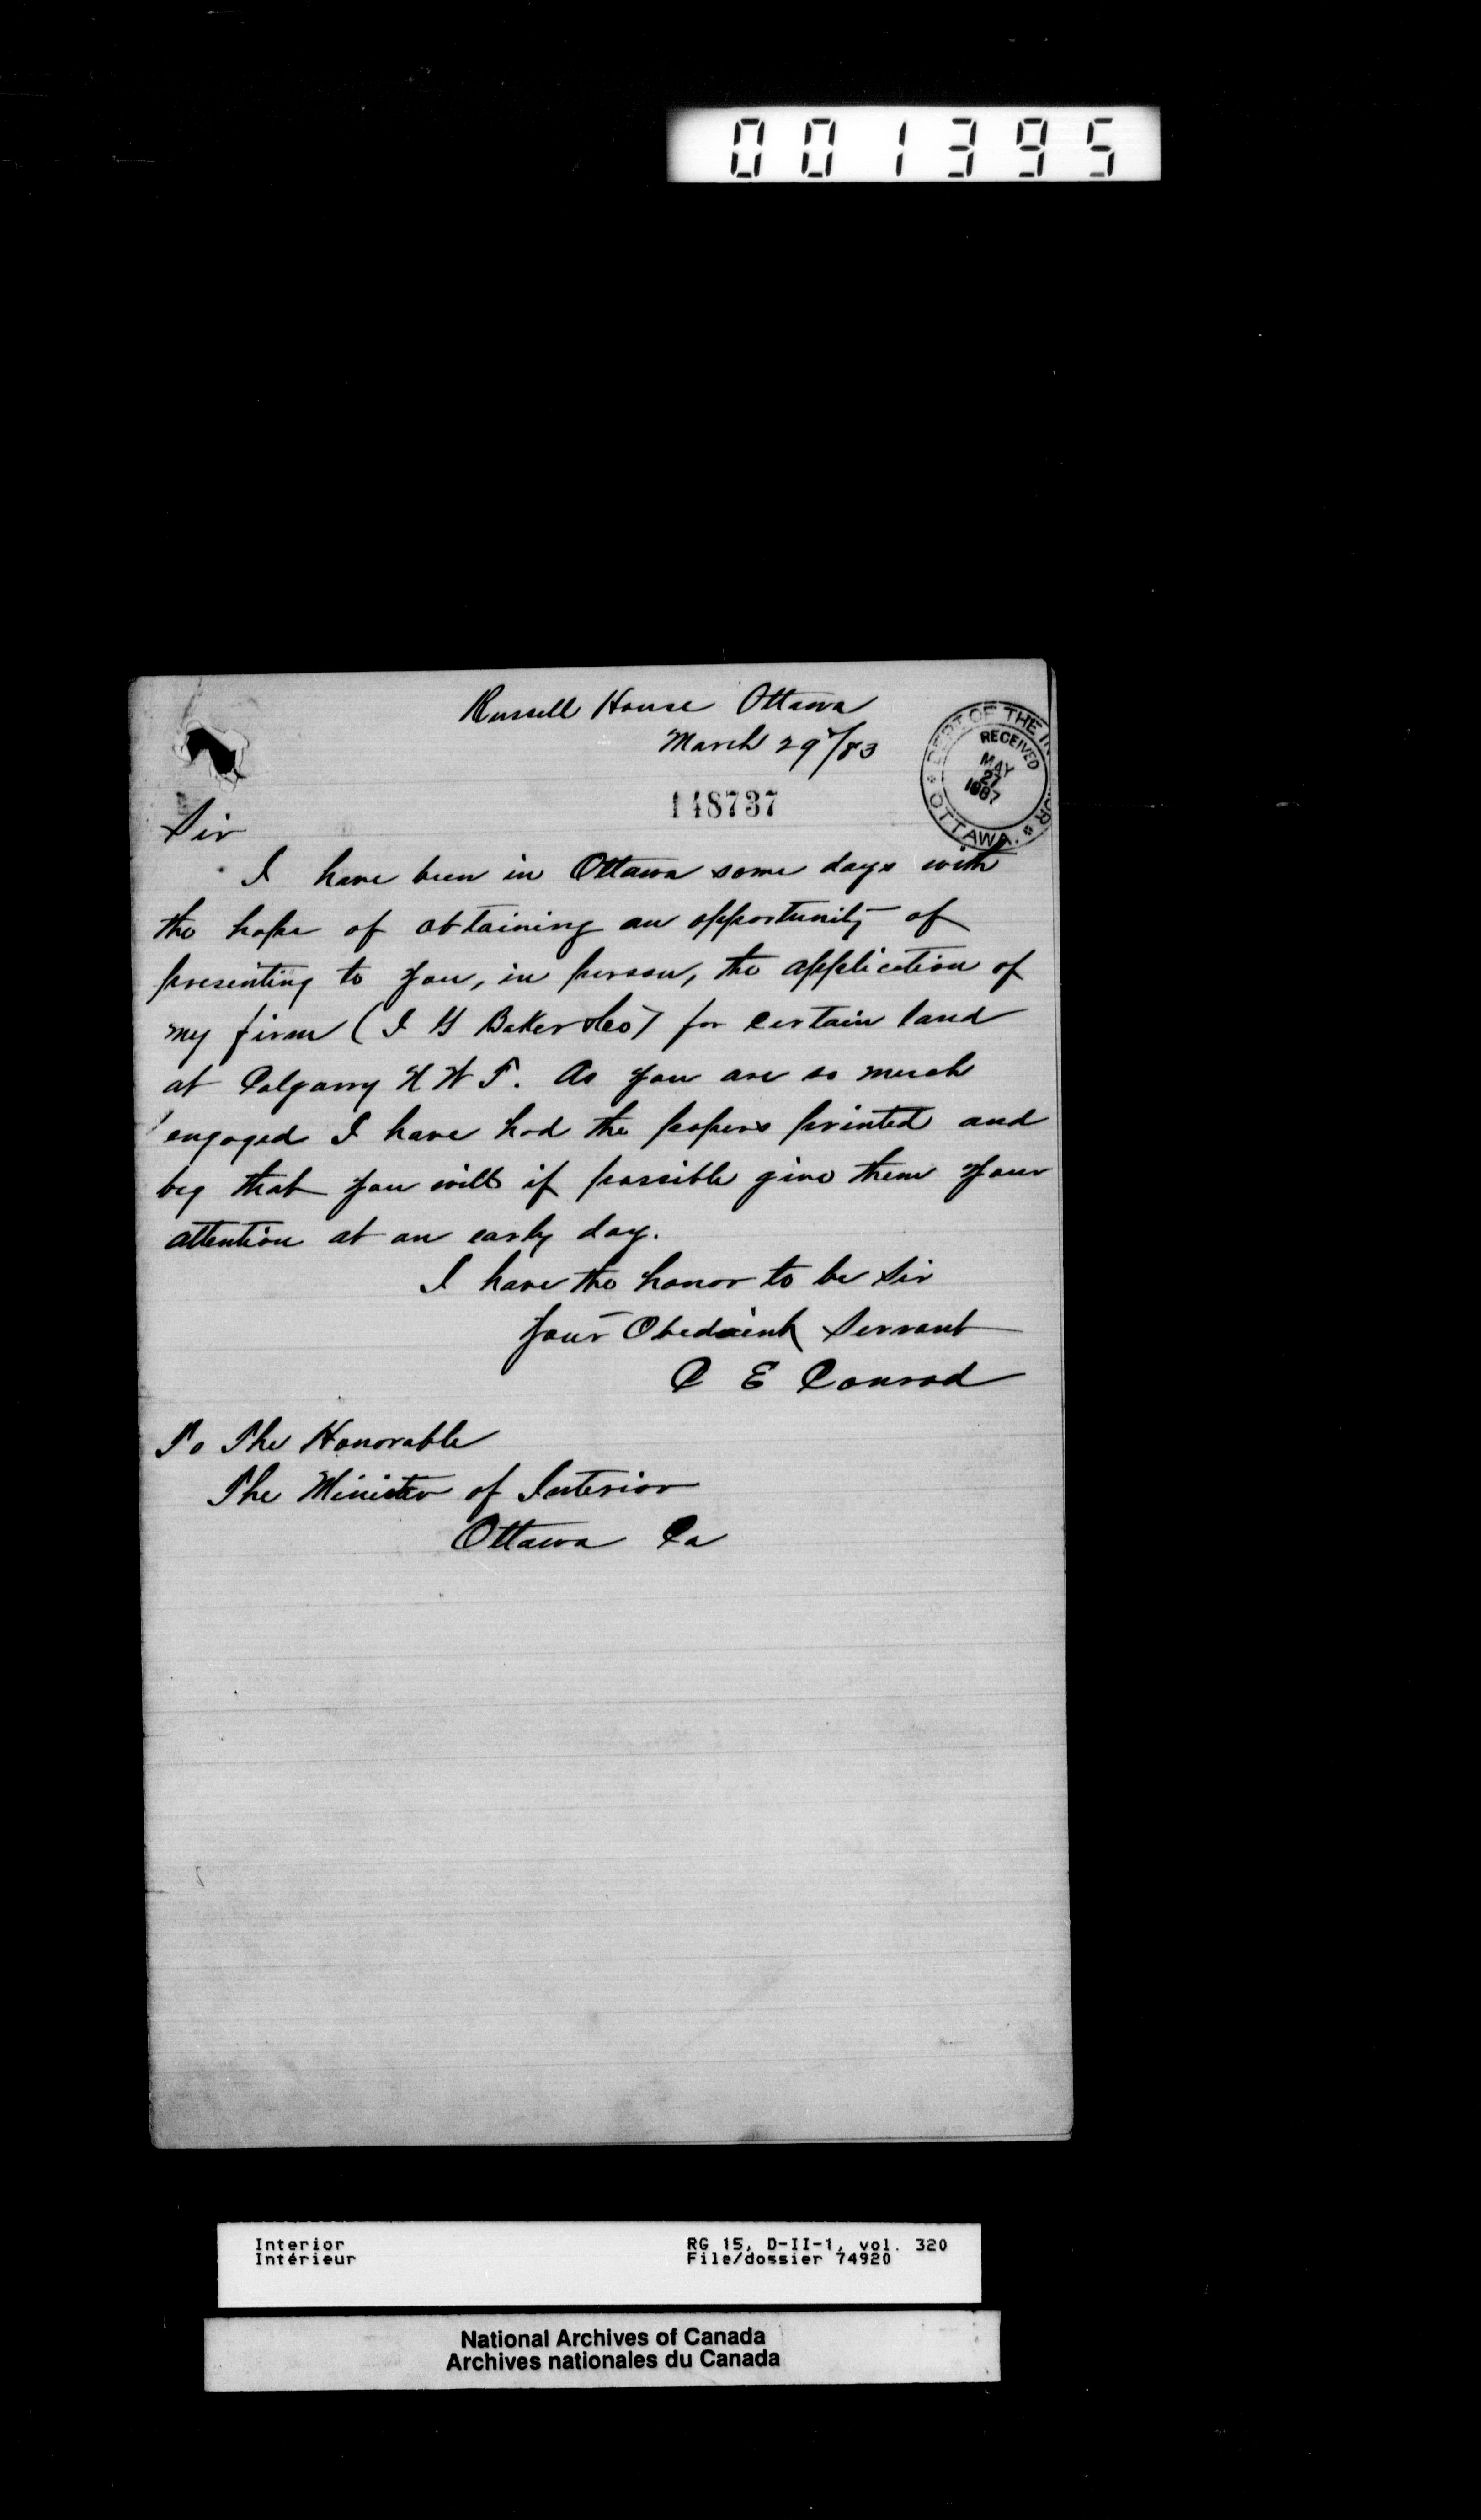 001395
Russell House Ottawa
March 29/83
DEPT OF THE IN
RIOR
OTTAWA.
RECEIVED
MAY
27
1887
148737
Sir
I have been in Ottawa some days with
the hope of obtaining an opportunity of
presenting to you, in person, the application of
my firm (I G Baker & Co) for certain land
at Calgarry N W T. As you are so much
engaged I have had the papers printed and
beg that you will if possible give them your
attention at an early day.
I have the honor to be Sir
Your Obedient Servant
C E Conrad
To The Honorable
The Minister of Interior
Ottawa Ca
Interior
Intérieur
RG 15, D-II-1, vol. 320
File/dossier 74920
National Archives of Canada
Archives nationales du Canada